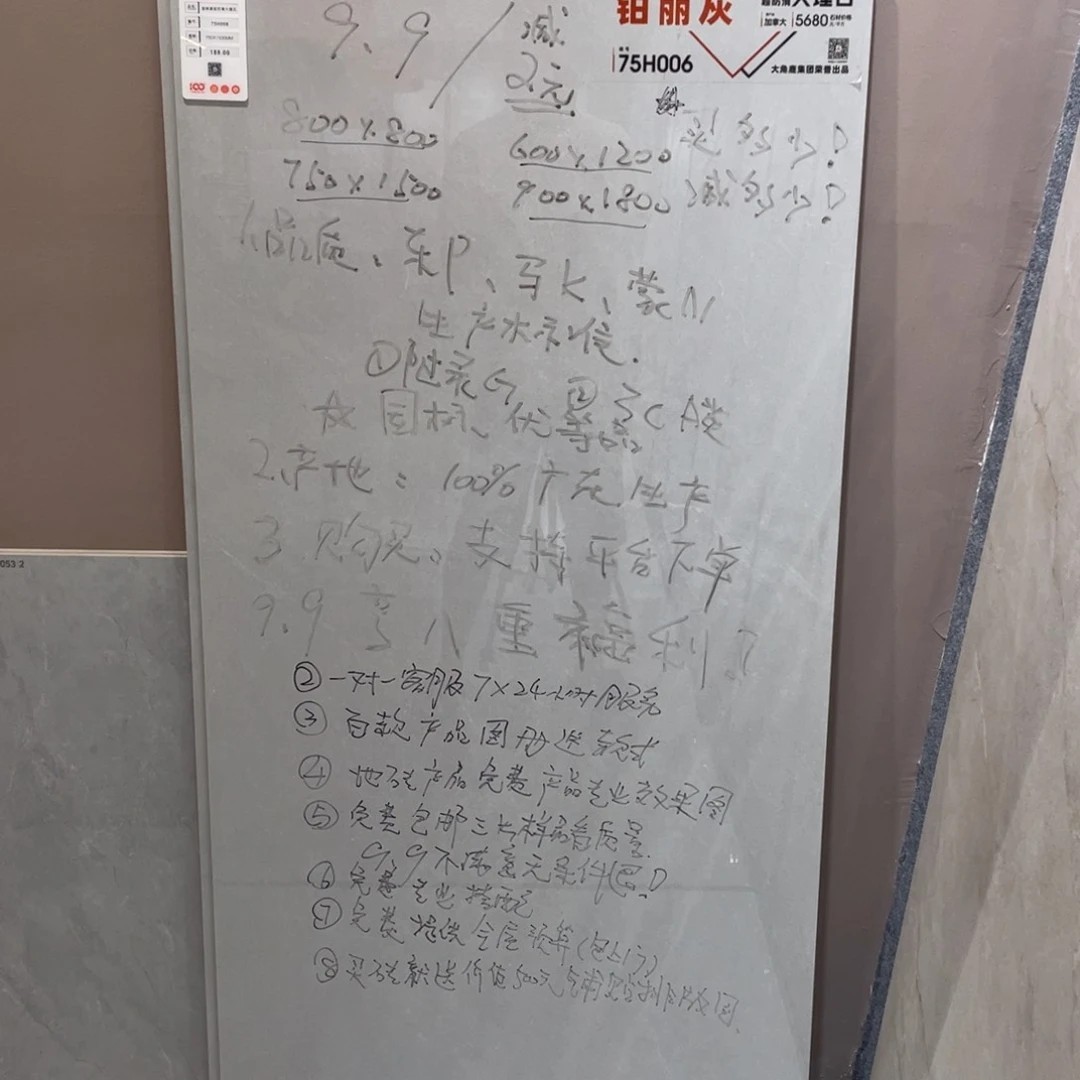 铂丽灰
大理石
加拿大 5680
75H006
大角鹿集团荣誉出品
189.00
9.9/减2元
800×800 600×1200 买多少!
750×1500 900×1800 减多少!
1.品质、东P、马K、蒙N
生产水和信.
①附录G ②3C A类
国标、优等品
2.产地:100%广东生产
3.购买。支持平台下单
9.9享八重福利?
②一对一客服7×24小时服务
③百款产品图册送款式
④地砖产品免费产品专业效果图
⑤免费包邮三片样品看质量
9.9不满意无条件退!
⑥免费专业搭配
⑦免费提供全屋预算(包上门)
⑧买砖就送价值500元
053 2